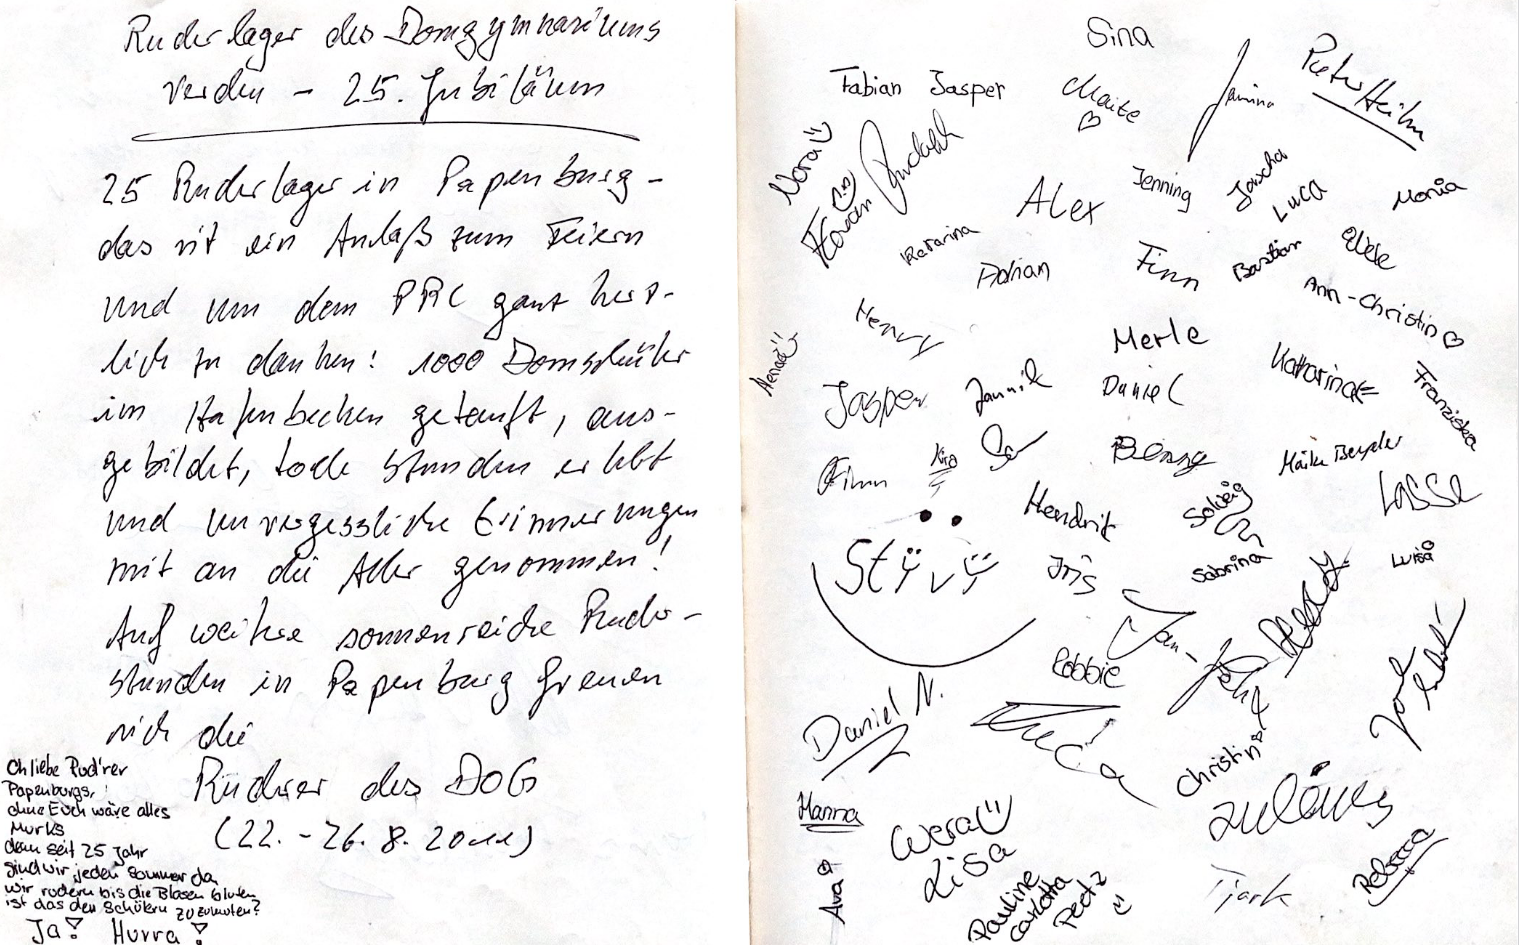 Ruderlager des Domgymnasiums
Verden - 25. Jubiläum
25 Ruderlager in Papenburg -
das ist ein Anlaß zum Feiern
und um dem PRC ganz herz-
lich zu danken! 1000 Domschüler
im Hafenbecken getauft, aus-
gebildet, tolle Stunden erlebt
und unvergessliche Erinnerungen
mit an die Aller genommen!
Auf weitere sonnenreiche Ruder-
stunden in Papenburg freuen
sich die
Ruderer des DOG
(22. - 26. 8. 2011)
Oh liebe Rud'rer
Papenburgs,
ohne Euch wäre alles
Murks
denn seit 25 Jahr
sind wir jeden Sommer da
wir rudern bis die Blasen bluten
ist das den Schülern zuzumuten?
Ja! Hurra!
Sina
Fabian Jasper
Maite
Janina
Nora
Alex
Jenning
Luca
Katarina
Adrian
Finn
Bastian
Ann-Christin
Henry
Merle
Katharina
Franziska
Jasper
Jannik
Daniel
Finn
Kira
Benny
Hendrik
Solveig
Lasse
Iris
Sabrina
Luisa
Jan-
Robbie
Daniel N.
Christin
Hanna
Wera
Lisa
Pauline
Carlotta
Peetz
Tjark
Rebecca